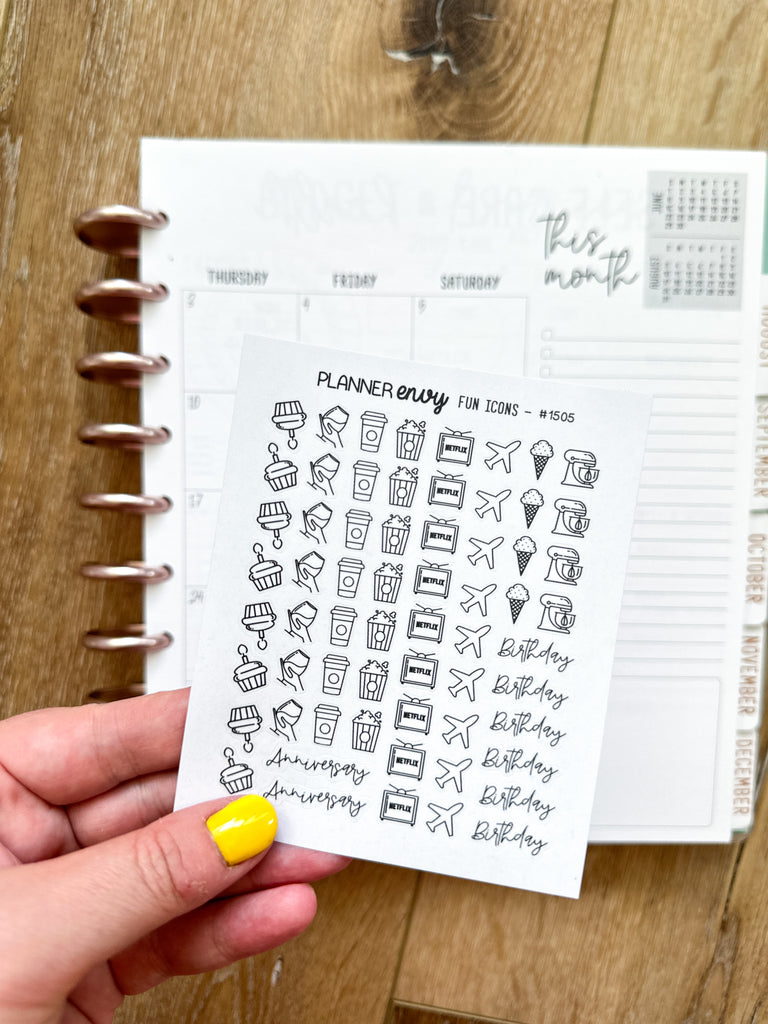 this
month
JUNE
AUGUST
THURSDAY FRIDAY SATURDAY
3 4 5
10
17
24
AUGUST
SEPTEMBER
OCTOBER
NOVEMBER
DECEMBER
PLANNER envy FUN ICONS - #1505
NETFLIX
NETFLIX
NETFLIX
NETFLIX
NETFLIX
Birthday
NETFLIX
Birthday
NETFLIX
Birthday
Anniversary
NETFLIX
Birthday
Anniversary
NETFLIX
Birthday
Birthday